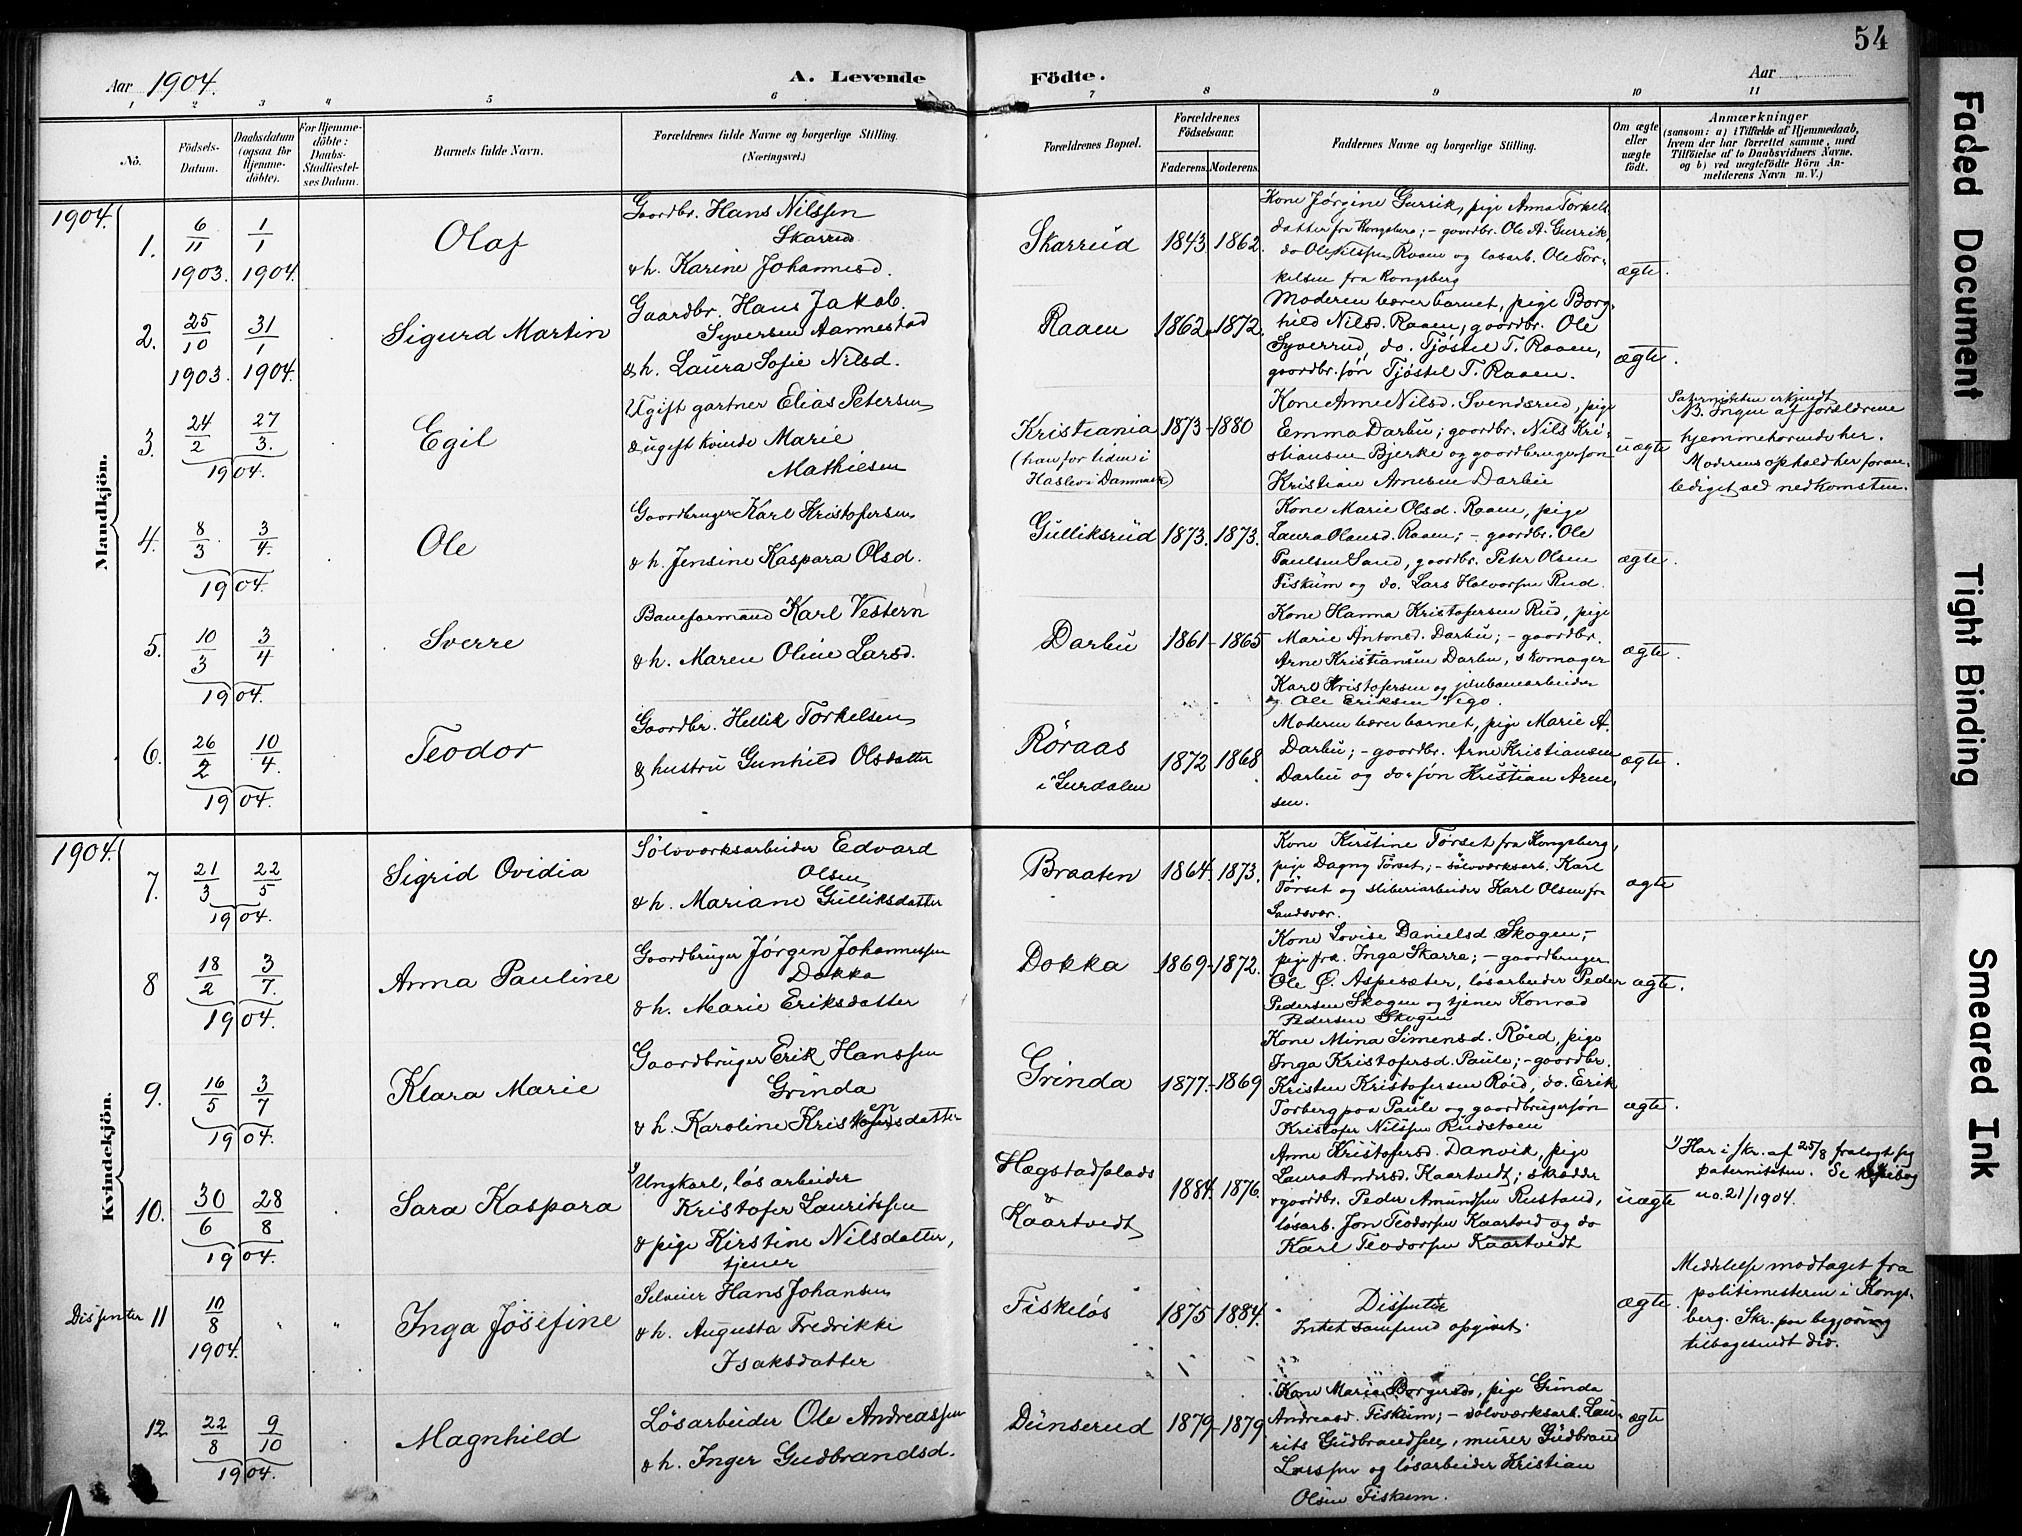 54
Aar 1904.
A. Levende Födte.
Aar
1 2 3 4 5 6 7 8 9 10 11
No.
Födsels-
Datum.
Daabsdatum
(ogsaa for
Hjemme-
döbte).
For Hjemme-
döbte:
Daabs-
Stadfæstel-
ses Datum.
Barnets fulde Navn.
Forældrenes fulde Navne og borgerlige Stilling.
(Næringsvei.)
Forældrenes Bopæl.
Forældrenes
Födselsaar.
Faderens.
Moderens.
Faddernes Navne og borgerlige Stilling.
Om ægte
eller
uægte
födt.
Anmærkninger
(saasom: a) i Tilfælde af Hjemmedaab,
hvem der har forrettet samme, med
Tilföielse af to Daabsvidners Navne.
og b) ved uægtefödte Börn An-
melderens Navn m. V.)
1904.
Mandkjön.
1.
6/11 1903.
1/1 1904.
Olaf
Gaardbr. Hans Nilssen
Skarrud
& h. Karine Johannesd.
Skarrud
1843. 1862.
Kone Jørgine Gurrik, pige Anna Torkels
datter fra Kongsberg; - gaardbr. Ole A. Gurrik,
do Ole Nilssen Raaen og løsarb. Ole Tor-
kelsen fra Kongsberg
ægte.
2.
25/10 1903.
31/1 1904.
Sigurd Martin
Gaardbr. Hans Jakob
Syversen Aannestad
& h. Laura Sofie Nilsd.
Raaen
1862 - 1872.
Moderen bærer barnet, pige Borg-
hild Nilsd. Raaen, gaardbr. Ole
Syverrud, do. Tjøstel T. Raaen,
gaardbr. søn Tjøstel T. Raaen.
ægte.
3.
24/2 27/3.
1904.
Egil
Ugift gartner Elias Petersen
& ugift kvinde Marie
Mathiesen
Kristiania
(han for tiden i
Haslev i Danmark)
1873 - 1880
Kone Anne Nilsd. Svendsrud, pige
Emma Darbu; gaardbr. Nils Kri-
stiansen Bjerke og gaardbrugersøn
Kristian Arnesen Darbu
uægte
Paterniteten erkjendt
NB. Ingen af forældrene
hjemmehørende her.
Moderens ophold her foran-
lediget ved nedkomsten.
4.
8/3 3/4.
1904.
Ole
Gaardbruger Karl Kristofersen
& h. Jensine Kaspara Olsd.
Gulliksrud
1873. 1873.
Kone Marie Olsd. Raaen, pige
Laura Olausd. Raaen; - gaardbr. Ole
Paulsen Sand, gaardbr. Peter Olsen
Fiskum og do. Lars Halvorsen Rud.
ægte.
5.
10/3 3/4
1904.
Sverre
Baneformand Karl Vestern
& h. Maren Oline Larsd.
Darbu
1861 - 1865
Kone Hanna Kristofersen Rud, pige
Marie Antonsd. Darbu; - gaardbr.
Arne Kristiansen Darbu, skomager
Karl Kristofersen og jernbanearbeider
og Ole Eriksen Vego.
ægte.
6.
26/2 10/4.
1904.
Teodor
Gaardbr. Hellik Torkelsen
& hustru Gunhild Olsdatter
Røraas
i Jurdalen
1872 - 1868
Moderen bærer barnet, pige Marie A.
Darbu; - gaardbr. Arne Kristiansen
Darbu og do. søn Kristian Arne-
sen.
ægte.
1904.
Kvindekjön.
7.
21/3 22/5
1904.
Sigrid Ovidia
Sølvværksarbeider Edvard
Olsen
& h. Mariane Gulliksdatter
Braaten
1864. 1873.
Kone Kirstine Tørset fra Kongsberg,
pige Dagny Tørset; - sølvværksarb. Karl
Tørset og sliberiarbeider Karl Olsen fra
Sandsvær.
ægte
8
18/2 3/7.
1904.
Anna Pauline
Gaardbruger Jørgen Johannessen
Dokka
& h. Marie Eriksdatter
Dokka
1869 - 1872.
Kone Lovise Danielsd Skogen, -
pige fra. Inga Skarra; - gaardbruger
Ole Ø. Aspesæter, løsarbeider Peder
Pedersen Skogen og tjener Konrad
Pedersen Skogen
ægte.
9.
16/5 3/7
1904.
Klara Marie
Gaardbruger Erik Hanssen
Grinda
& h. Karoline Kristensdatter
Grinda
1877 - 1869
Kone Mina Simensd. Røed, pige
Inga Kristofersd. Paule; - gaardbr.
Kristen Kristofersen Røed, do. Erik
Torberg paa Paule og gaardbrugersøn
Kristofer Nilssen Rudstaen
ægte.
10.
30/6 28/8
1904.
Sara Kaspara
1) Ungkarl, løsarbeider
Kristofer Lauritssen
& pige Kirstine Nilsdatter,
tjener
Hægstadplads
&
Kaartvedt
1884. 1876.
Anne Kristofersd. Danvik, pige
Laura Andersd. Kaartvedt; skrædder
& gaardbr. Peder Amundsen Rustand,
løsarb. Jon Teodorsen Kaartved og do
Karl Teodorsen Kaartvedt
uægte
1) Har i skr. af 25/8 fralagt sig
paterniteten. Se kopibog
no. 21/1904.
Dissenter 11
10/8
1904.
" "
Inga Josefine
Selveier Hans Johansen
& h. Augusta Fredrikke
Isaksdatter
Fiskeløs
1875 - 1884.
Dissenter
Intet samfund opgivet.
ægte.
Meddelelse modtaget fra
politimesteren i Kongs-
berg. Skr. paa begjæring
tilbagesendt did.
12.
22/8 9/10
1904.
Magnhild
Løsarbeider Ole Andreassen
& h. Inger Gudbrandsd.
Dunserud
1879 - 1879
Kone Maria Borgersd., pige Grinda
Andreasd. Fiskum; - sølvværksarb. Lau-
rits Gudbrandsen, murer Gudbrand
Larssen og løsarbeider Kristian
Olsen Fiskum.
ægte
Faded Document
Tight Binding
Smeared Ink